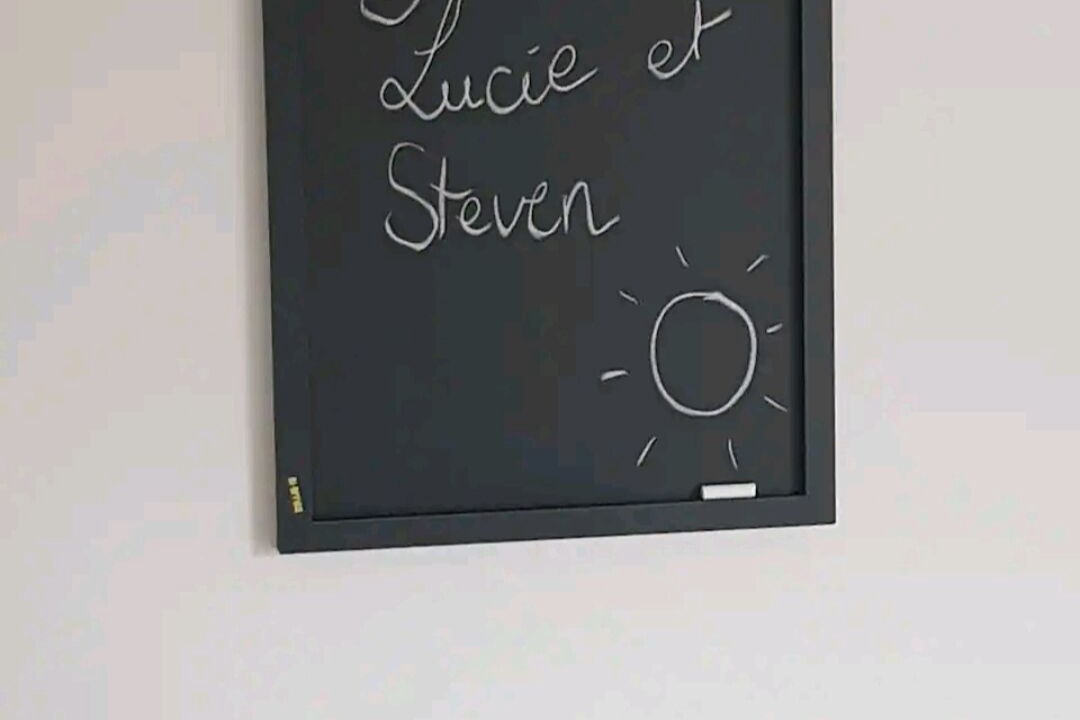 Lucie et
Steven